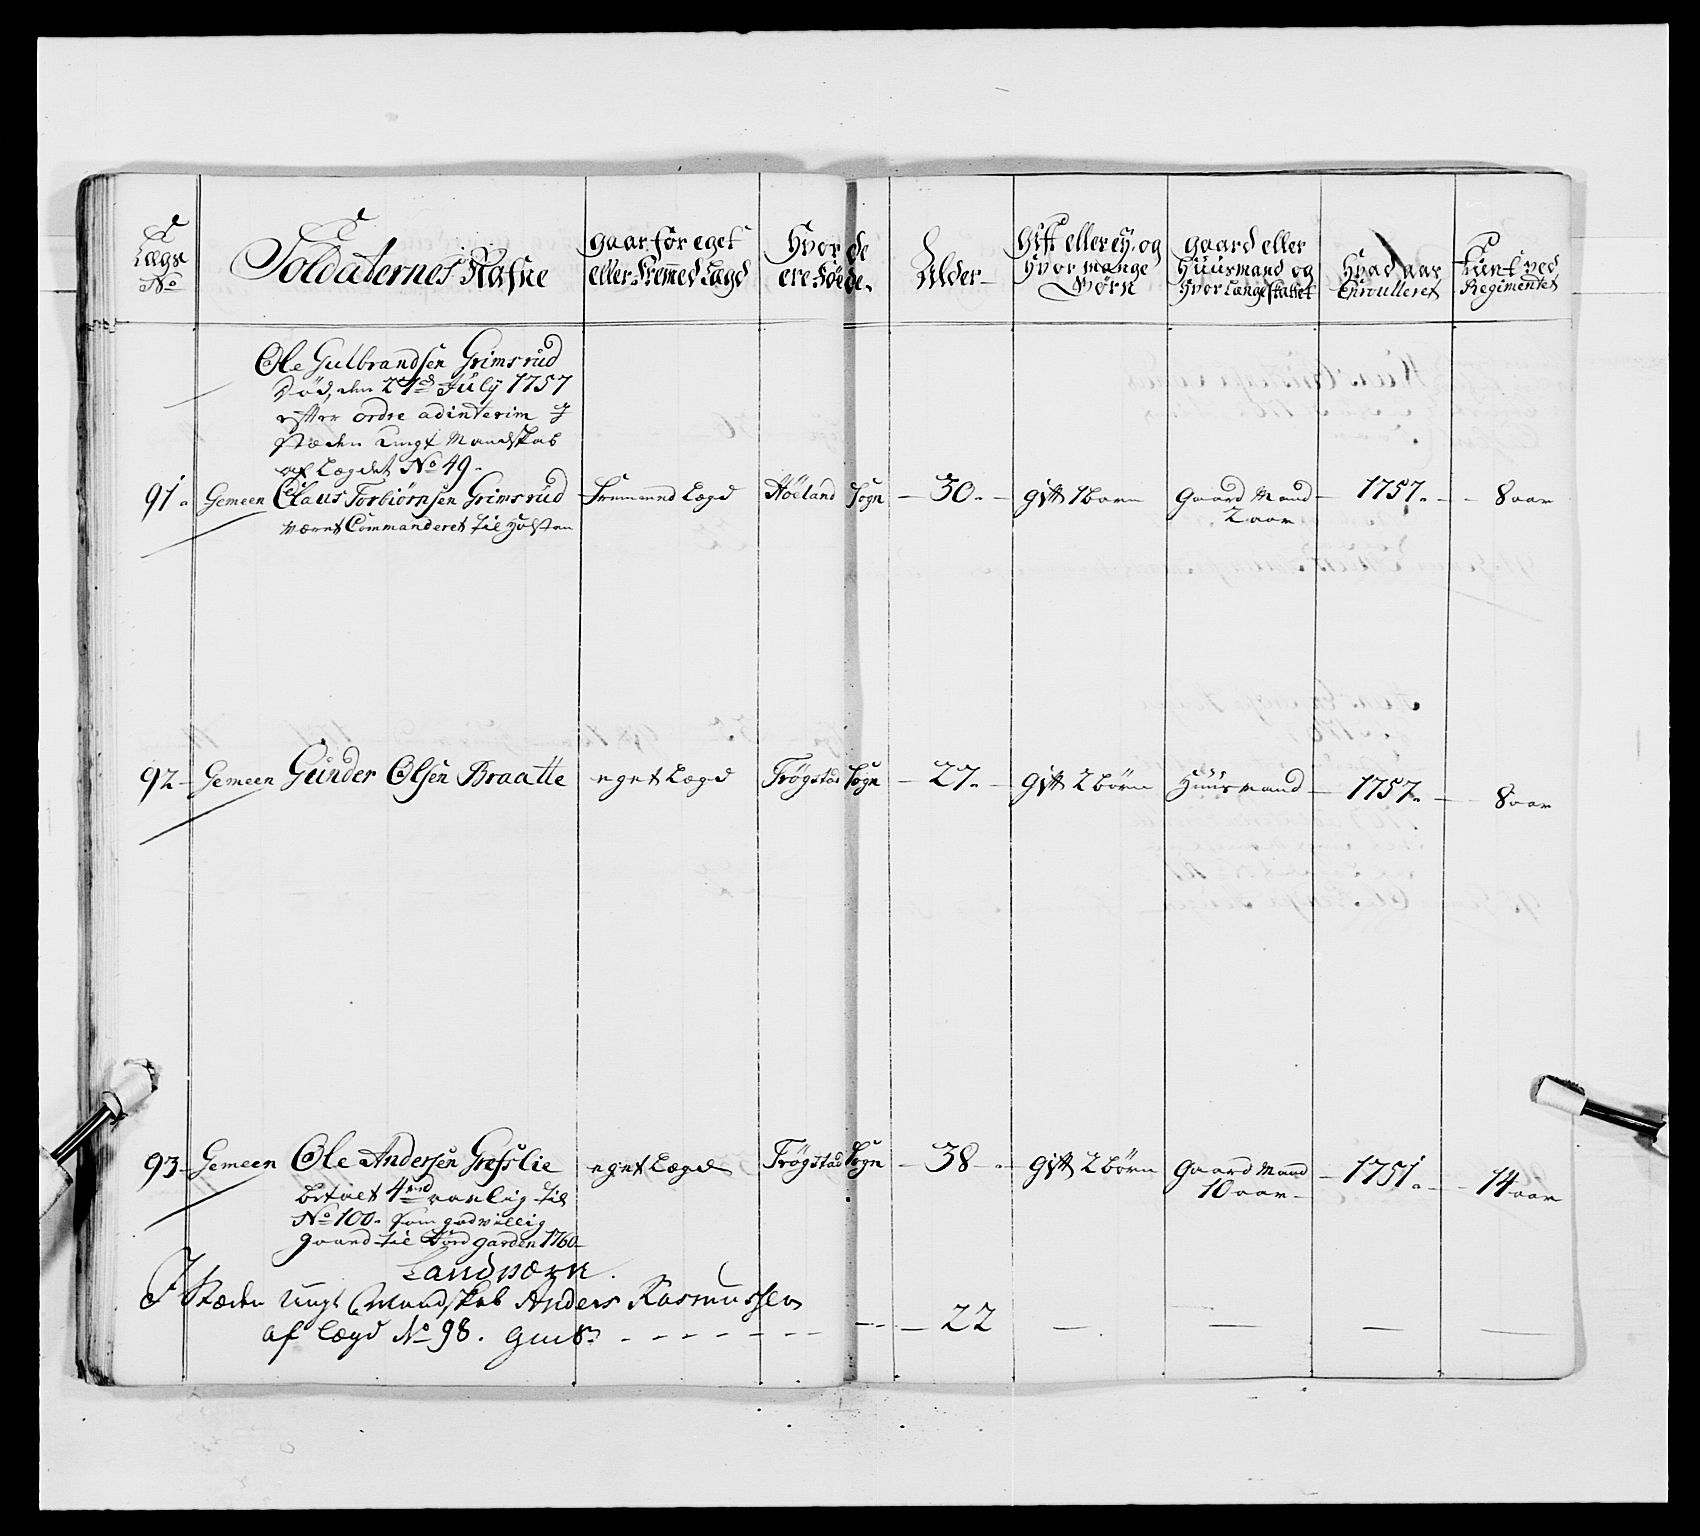 Lægs No | Soldaternes Nafne | gaar for eget eller Fremmed Lægd | Hvor de ere Føde. | Alder | Gift eller ey, og Hvor mange Børn | gaard eller Huusmand og Hvor Længe skattet | Hvad aar Enroulleret | Tient ved Regimentet
Ole Gulbrandsen Grimsrud
Død, den July 1757
efter ordre adinterim J
stæden Ungt Mandskab
af Lægdet No 49.
91. Gemeen Claus Torbiørnsen Grimsrud | Fremmed Lægd | Høeland Sogn | 30. | gift 1 barn | Gaard Mand 2 aar | 1757. | 8 aar
været Commanderet til Holsten
92 Gemeen Gunder Olsen Braatte | eget Lægd | Trøgstad Sogn | 27. | gift 2 børn | Huusmand | 1757. | 8 aar
93 Gemeen Ole Andersen Gresslie | eget Lægd | Trøgstad Sogn | 38 | gift 2 børn | Gaard Mand 10 aar | 1751. | 14 aar
betalt 4 aarlig til
No 100. som godvillig
gaaed til garden 1760
Landværn.
I stæden Ungt Mandskab Anders Rasmussen
af Lægd No 98. | 22